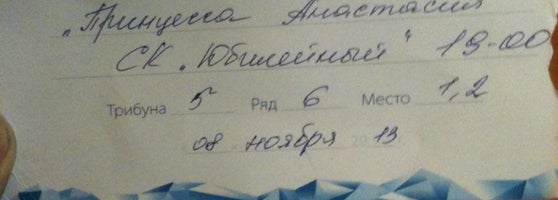 „Принцесса Анастасия
СК „Юбилейный“ 19-00
Трибуна 5 Ряд 6 Место 1,2
08 ноября 2013